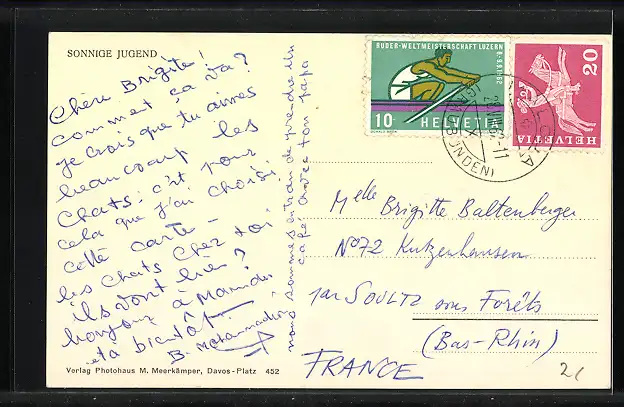 SONNIGE JUGEND
Chere Brigite!
comment ça va?
je crois que tu aimes
beaucoup les
chats. c'et pour
cela que j'ai choisi
cette carte –
les chats chez toi
ils vont bien?
bonjour à Maman
et a bientôt
B.
nous somme entran de prendre un
café avec ton papa
RUDER-WELTMEISTERSCHAFT LUZERN
10 HELVETIA
20
HELVETIA
(GRAUBÜNDEN)
Melle Brigitte Baltenberger
No 72 Kutzenhausen
par SOULTZ sous Forêts
(Bas-Rhin)
FRANCE
Verlag Photohaus M. Meerkämper, Davos-Platz 452